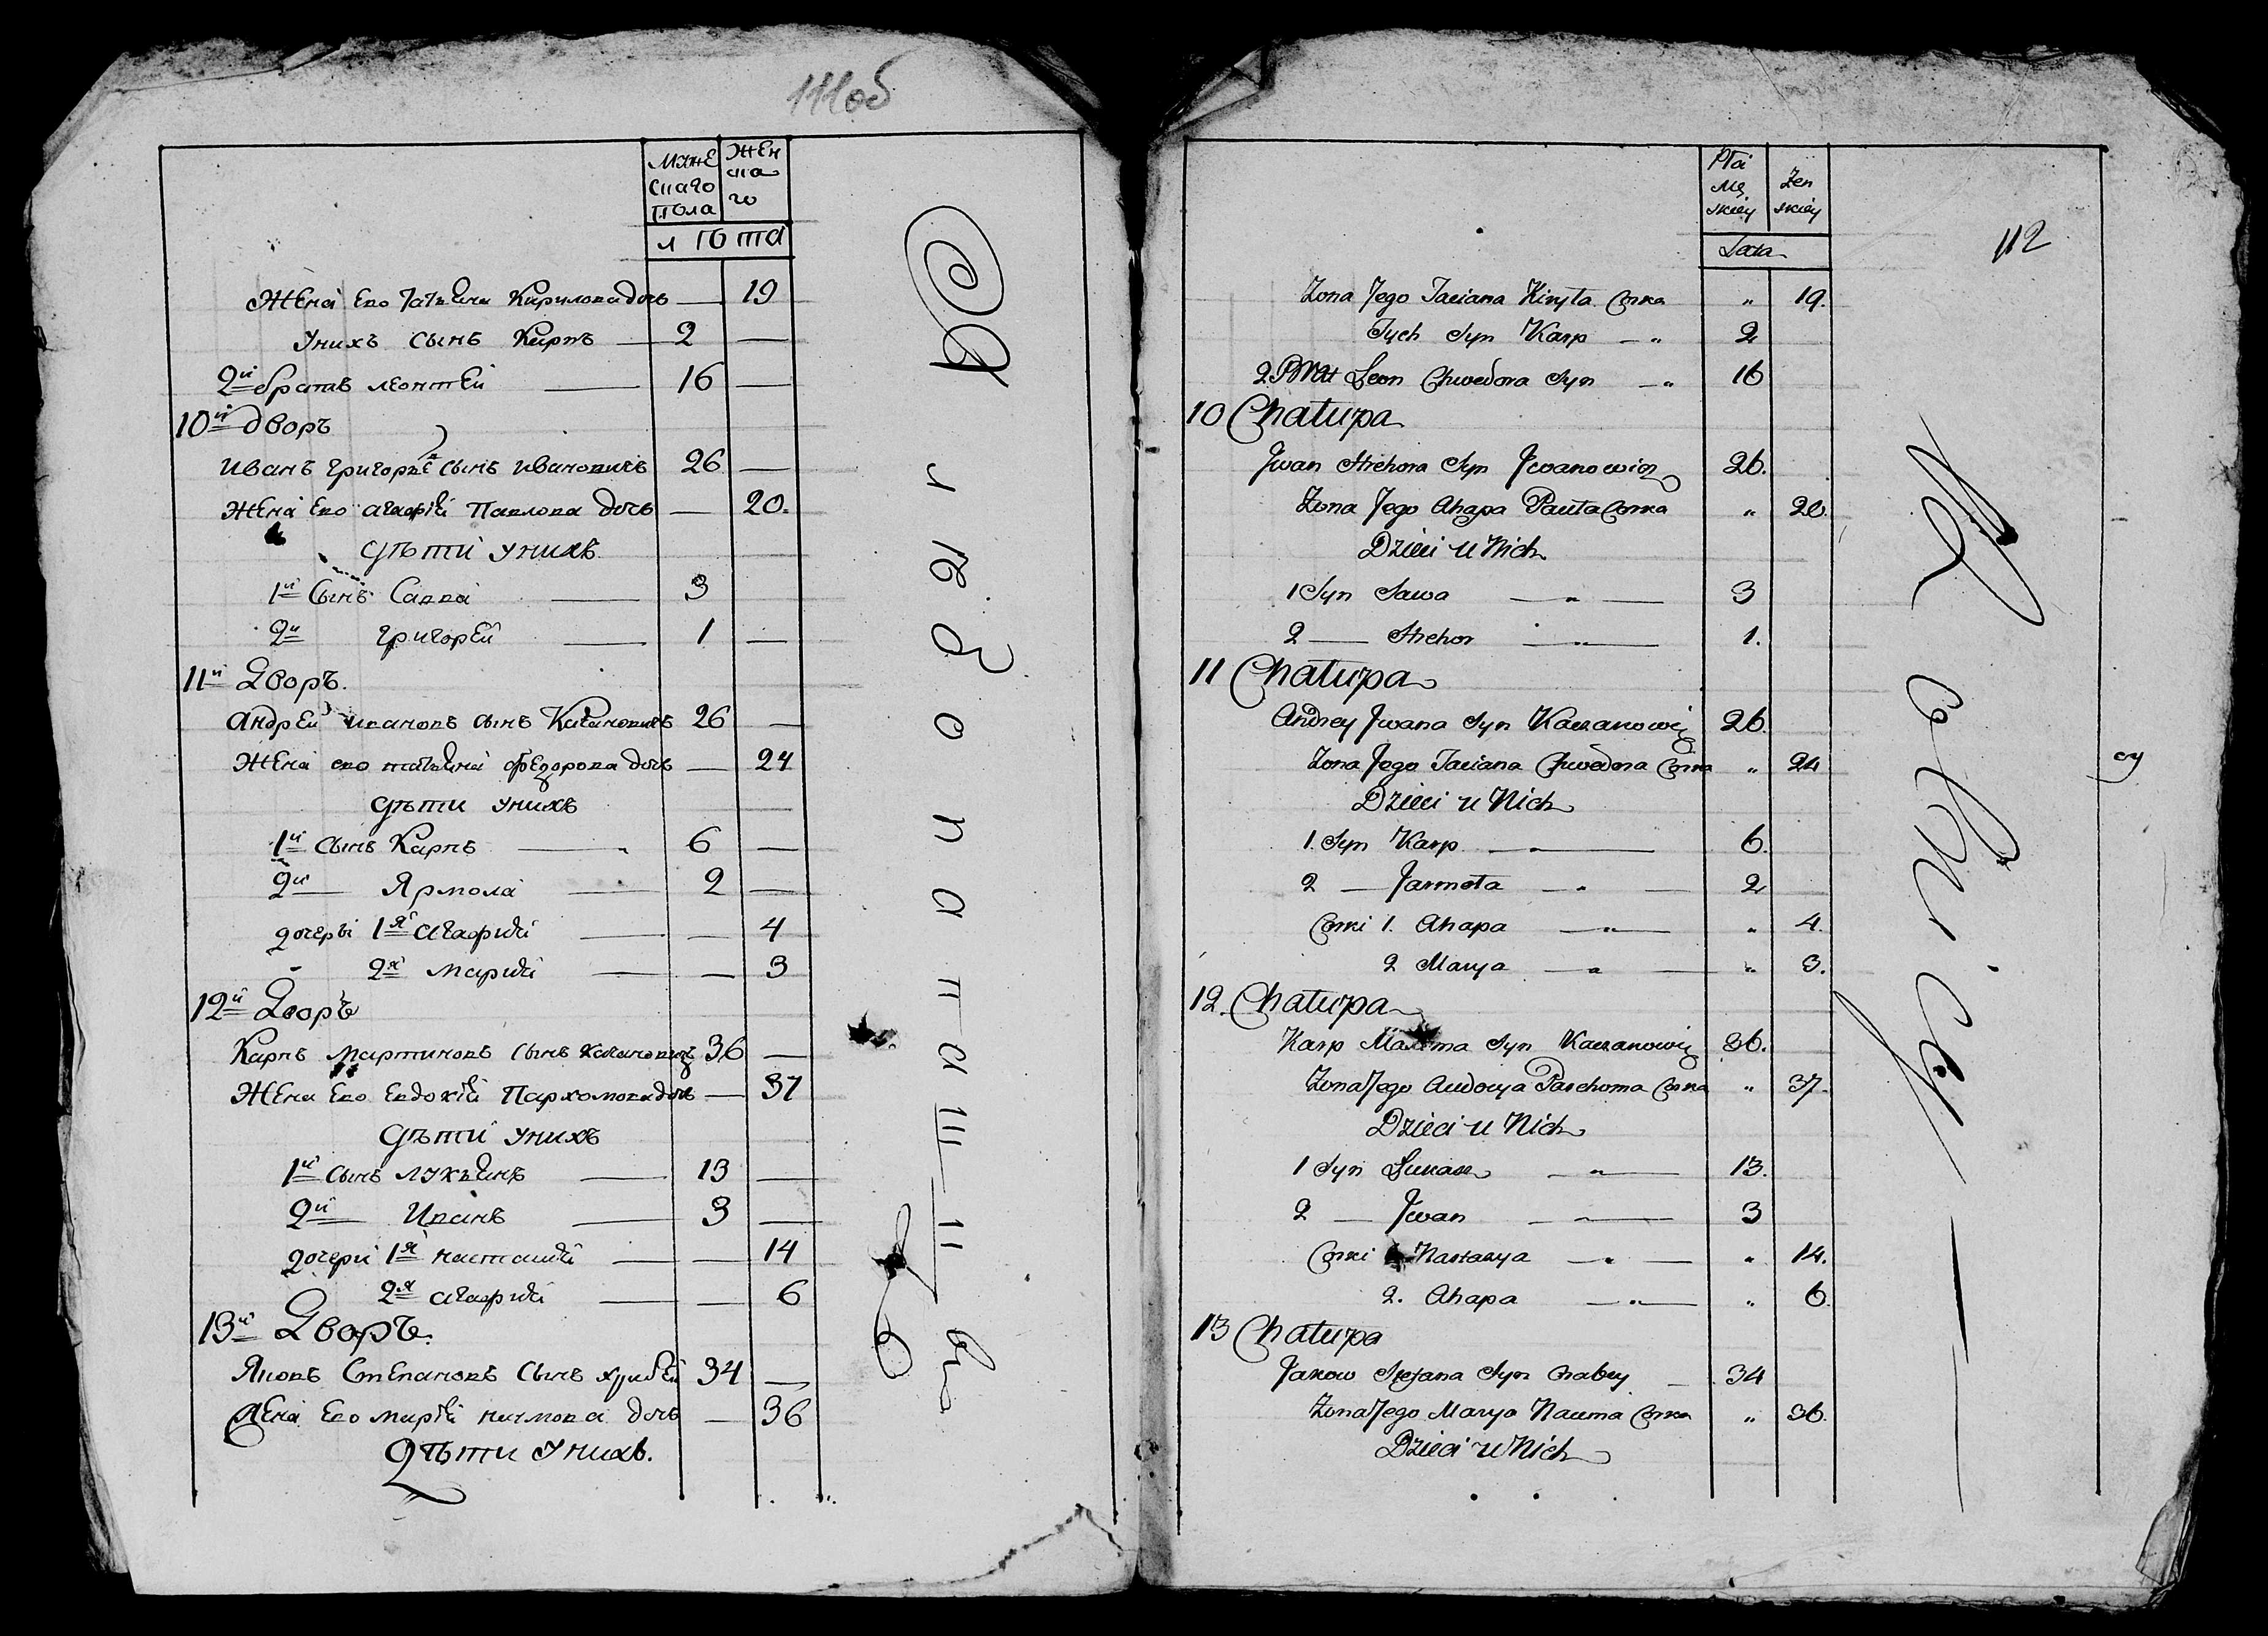 111об
Мяже
скаго
пола
Жен
ска
го
лѣта
Жена Ево Татьяна Кирилова дочь — 19
У нихъ сынъ Карпъ — 2 —
2й братъ леонтей — 16 —
10й дворъ
Иванъ григорьевъ сынъ Ивановичъ 26 —
Жена Ево агафия Павлова дочь — 20.
Дѣти у нихъ
1й Сынъ Савва — 3
2й григорей — 1 —
11й Дворъ.
андрей ивановъ сынъ Качановичъ 26 —
Жена ево татьяна федорова дочь — 24
Дѣти у нихъ
1й сынъ Карпъ — 6 —
2й — Ярмола — 2 —
дочери 1я агафия — — 4
2я мария — — 3
12й Дворъ
Карпъ мартиновъ сынъ качановичъ 36 —
Жена Ево Евдокия Пархомова дочь — 37
Дѣти у нихъ
1й сынъ лукьянъ — 13 —
2й — Иванъ — 3 —
дочери 1я настасия — — 14
2я агафия — — 6
13й Дворъ.
Яковъ Степановъ Сынъ храбей 34 —
Жена Ево мария наумова дочь — 36
Дѣти у нихъ.
112
Płci
Mę
skiey
Żen
skiey
Lata
Żona Jego Taciana Kiryła Corka " 19.
Tych Syn Karp — " 2
2. Brat Leon Chwedora Syn — " 16
10 Chałupa
Jwan Hrehora Syn Jwanowicz 26.
Żona Jego Ahapa Pawła Corka " 20.
Dzieci u Nich
1 Syn Sawa — " — 3
2 — Hrehor — " — 1.
11 Chałupa
Andrey Jwana Syn Kaczanowicz 26.
Żona Jego Taciana Chwedora Corka " 24
Dzieci u Nich
1. Syn Karp — " — 6.
2 — Jarmoła — " — 2
Corki 1. Ahapa — " — " 4.
2 Marya — " — " 3.
12. Chałupa
Karp Marcina Syn Kaczanowicz 36.
Żona Jego Audocya Parchoma Corka " 37.
Dzieci u Nich
1 Syn Łukasz — " — 13.
2 — Jwan — " — 3
Corki 1 Nastazya — " — " 14.
2. Ahapa — " — " 6.
13 Chałupa
Jakow Stefana Syn Chrabey — 34
Żona Jego Marya Nauma Corka " 36.
Dzieci u Nich